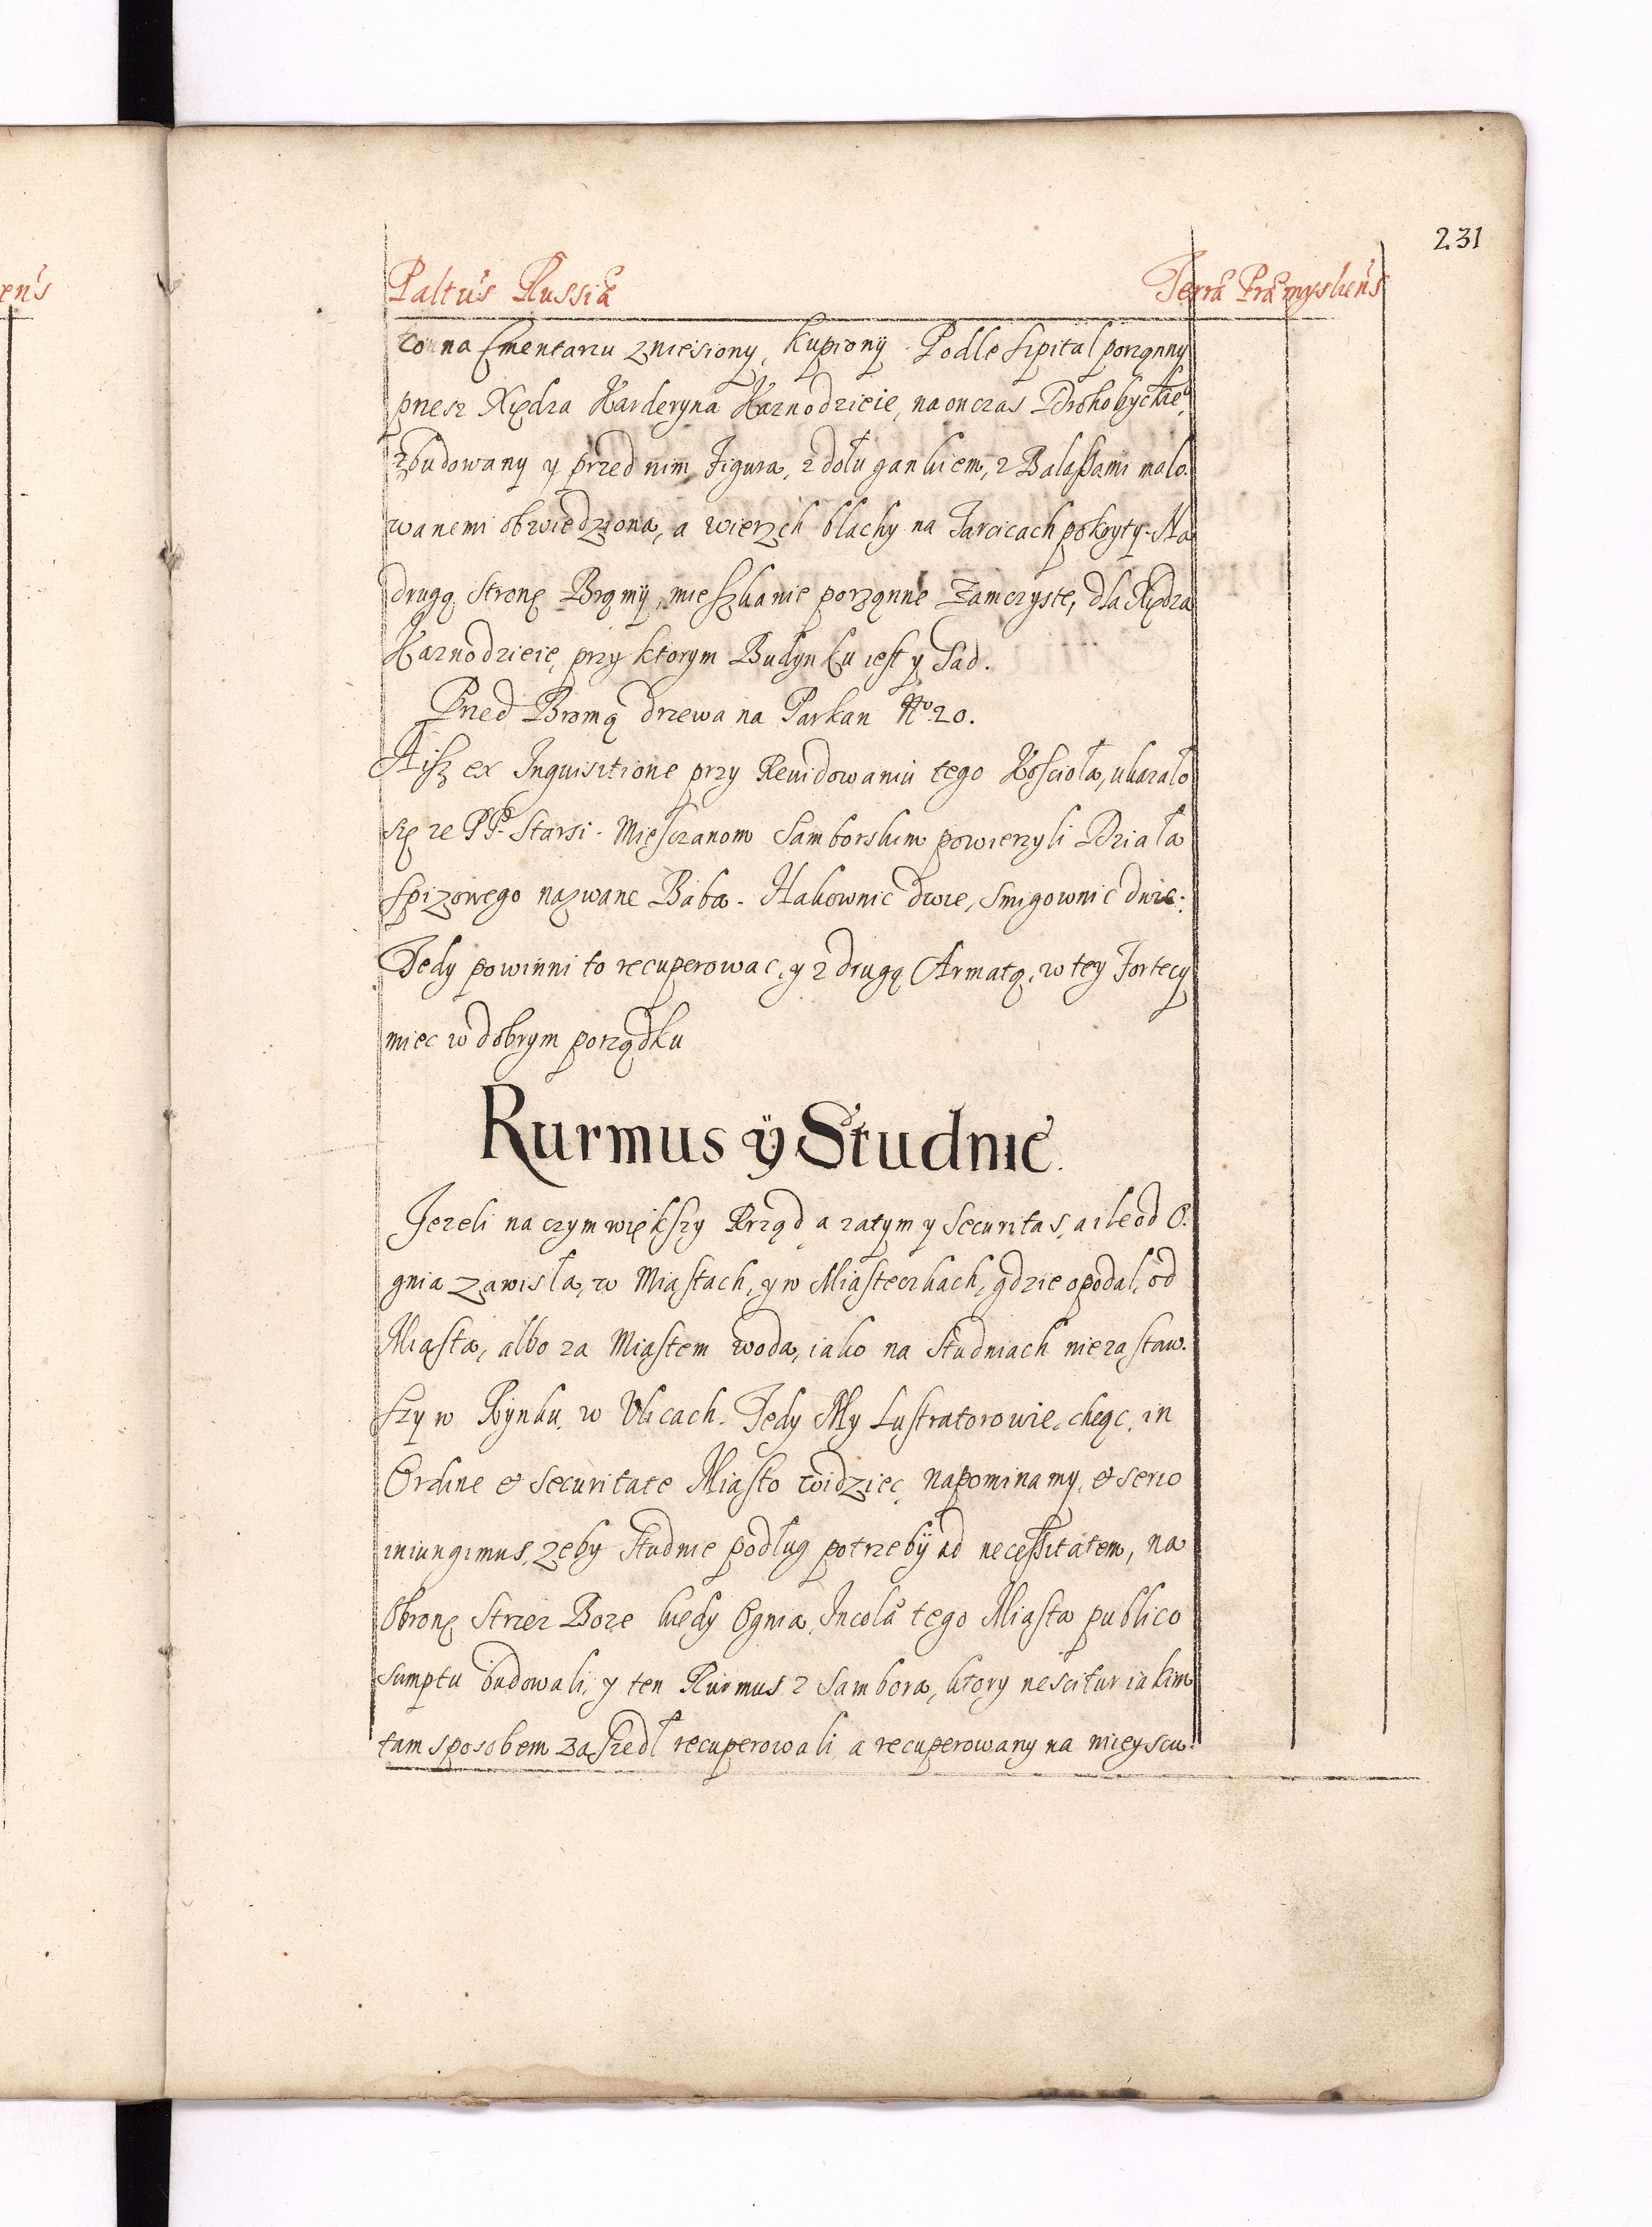 231
Paltus Russiæ Terræ Præmysliens
co na Cmentarzu zniesiony, kupiony. Podle szpital porządny
przesz Xiędza Karderyna Kaznodzieie, na on czas Drohobyckie°,
zbudowany y przed nim Figura, z dołu gankiem, z Balaßami malo-
wanemi obwiedziona, a wierzch blachy na Tarcicach pokryty. Na
drugą stronę Bramÿ, mieszkanie porządne Zamczyste, dla Xiędza
Kaznodzieie, przy ktorym Budynku iest y Sad.
Przed Bromą drzewa na Parkan No. 20.
A isz ex Inquisitione przy Rewidowaniu tego Kościoła, ukazało
się ze PP. Starsi. Miesczanom Samborskim powierzyli Działa
spizowego nazwane Baba. Hakownic dwie, smigownic dwie:
Tedy powinni to recuperowac, y z drugą Armatą, w tey Fortecy
miec w dobrym porządku
Rurmus ÿ Studnie.
Jezeli na czym większy Rrząd a zatym y securitas, a ile od O-
gnia zawisła, w Miastach, y w Miasteczkach, gdzie opodal, od
Miasta, albo za Miastem woda, iako na studniach niezastaw-
szy w Rynku, w Ulicach. Tedy My Lustratorowie, chcąc, in
Ordine et securitate Miasto widziec, napominamy, et serio
iniungimus, zeby studnie podług potrzebÿ ad neceßitatem, na
Obronę strzez Boze kiedy Ognia, Incolæ tego Miasta publico
sumptu budowali, y ten Rurmus z Sambora, ktory nescitur iakim
tam sposobem zaszedł recuperowali, a recuperowany na mieyscu